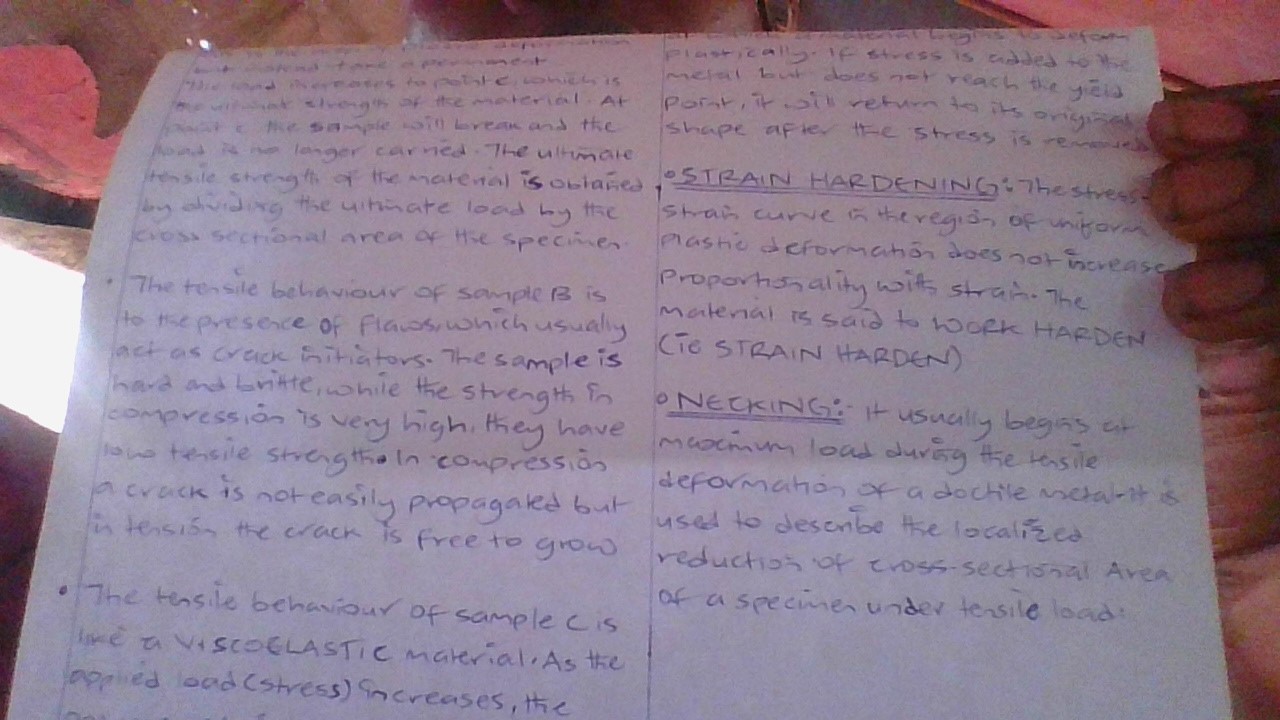 but instead take a permanent
The load increases to point C, which is
the ultimate strength of the material. At
point C the sample will break and the
load is no longer carried. The ultimate
tensile strength of the material is obtained
by dividing the ultimate load by the
cross sectional area of the specimen.
• The tensile behaviour of sample B is
to the presence of flaws, which usually
act as crack initiators. The sample is
hard and brittle, while the strength in
compression is very high, they have
low tensile strength. In compression
a crack is not easily propagated but
in tension the crack is free to grow
• The tensile behaviour of sample C is
like a VISCOELASTIC material. As the
applied load (stress) increases, the
material begins to deform
plastically. If stress is added to the
metal but does not reach the yield
point, it will return to its original
shape after the stress is removed
• STRAIN HARDENING: The stress-
strain curve in the region of uniform
plastic deformation does not increase
proportionality with strain. The
material is said to WORK HARDEN
(ie STRAIN HARDEN)
• NECKING:- It usually begins at
maximum load during the tensile
deformation of a doctile metal. It is
used to describe the localized
reduction of cross-sectional Area
of a specimen under tensile load.